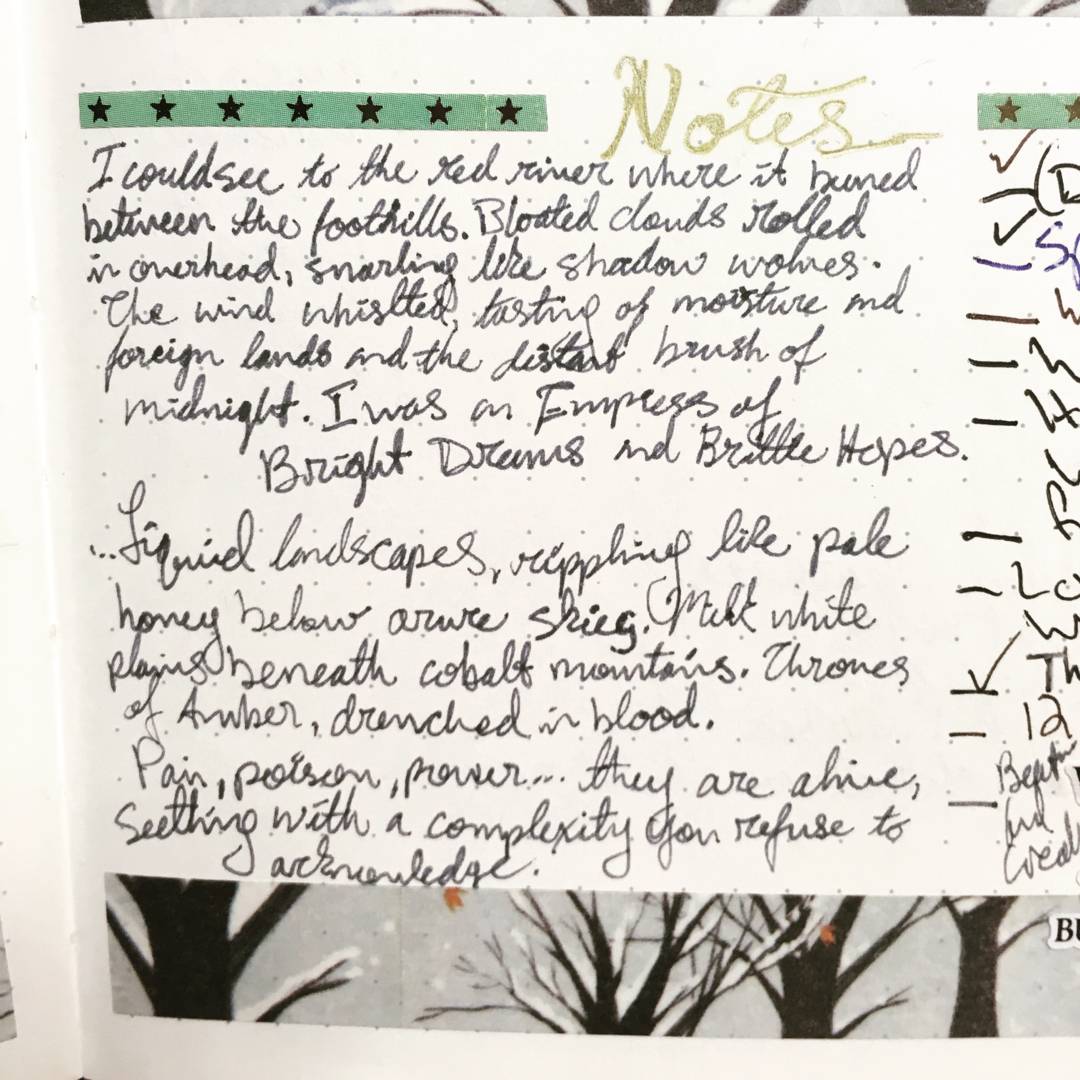 Notes
I could see to the red river where it burned
between the foothills. Bloated clouds rolled
in overhead, snarling like shadow wolves.
The wind whislted, tasting of moisture and
foreign lands and the distant brush of
midnight. I was an Empress of
Bright Dreams and Brittle Hopes.
...Liquid landscapes, rippling like pale
honey below azure skies. Milk white
plains beneath cobalt mountains. Thrones
of Amber, drenched in blood.
Pain, poison, power... they are alive,
Seething with a complexity you refuse to
acknowledge.
Th
12
BU